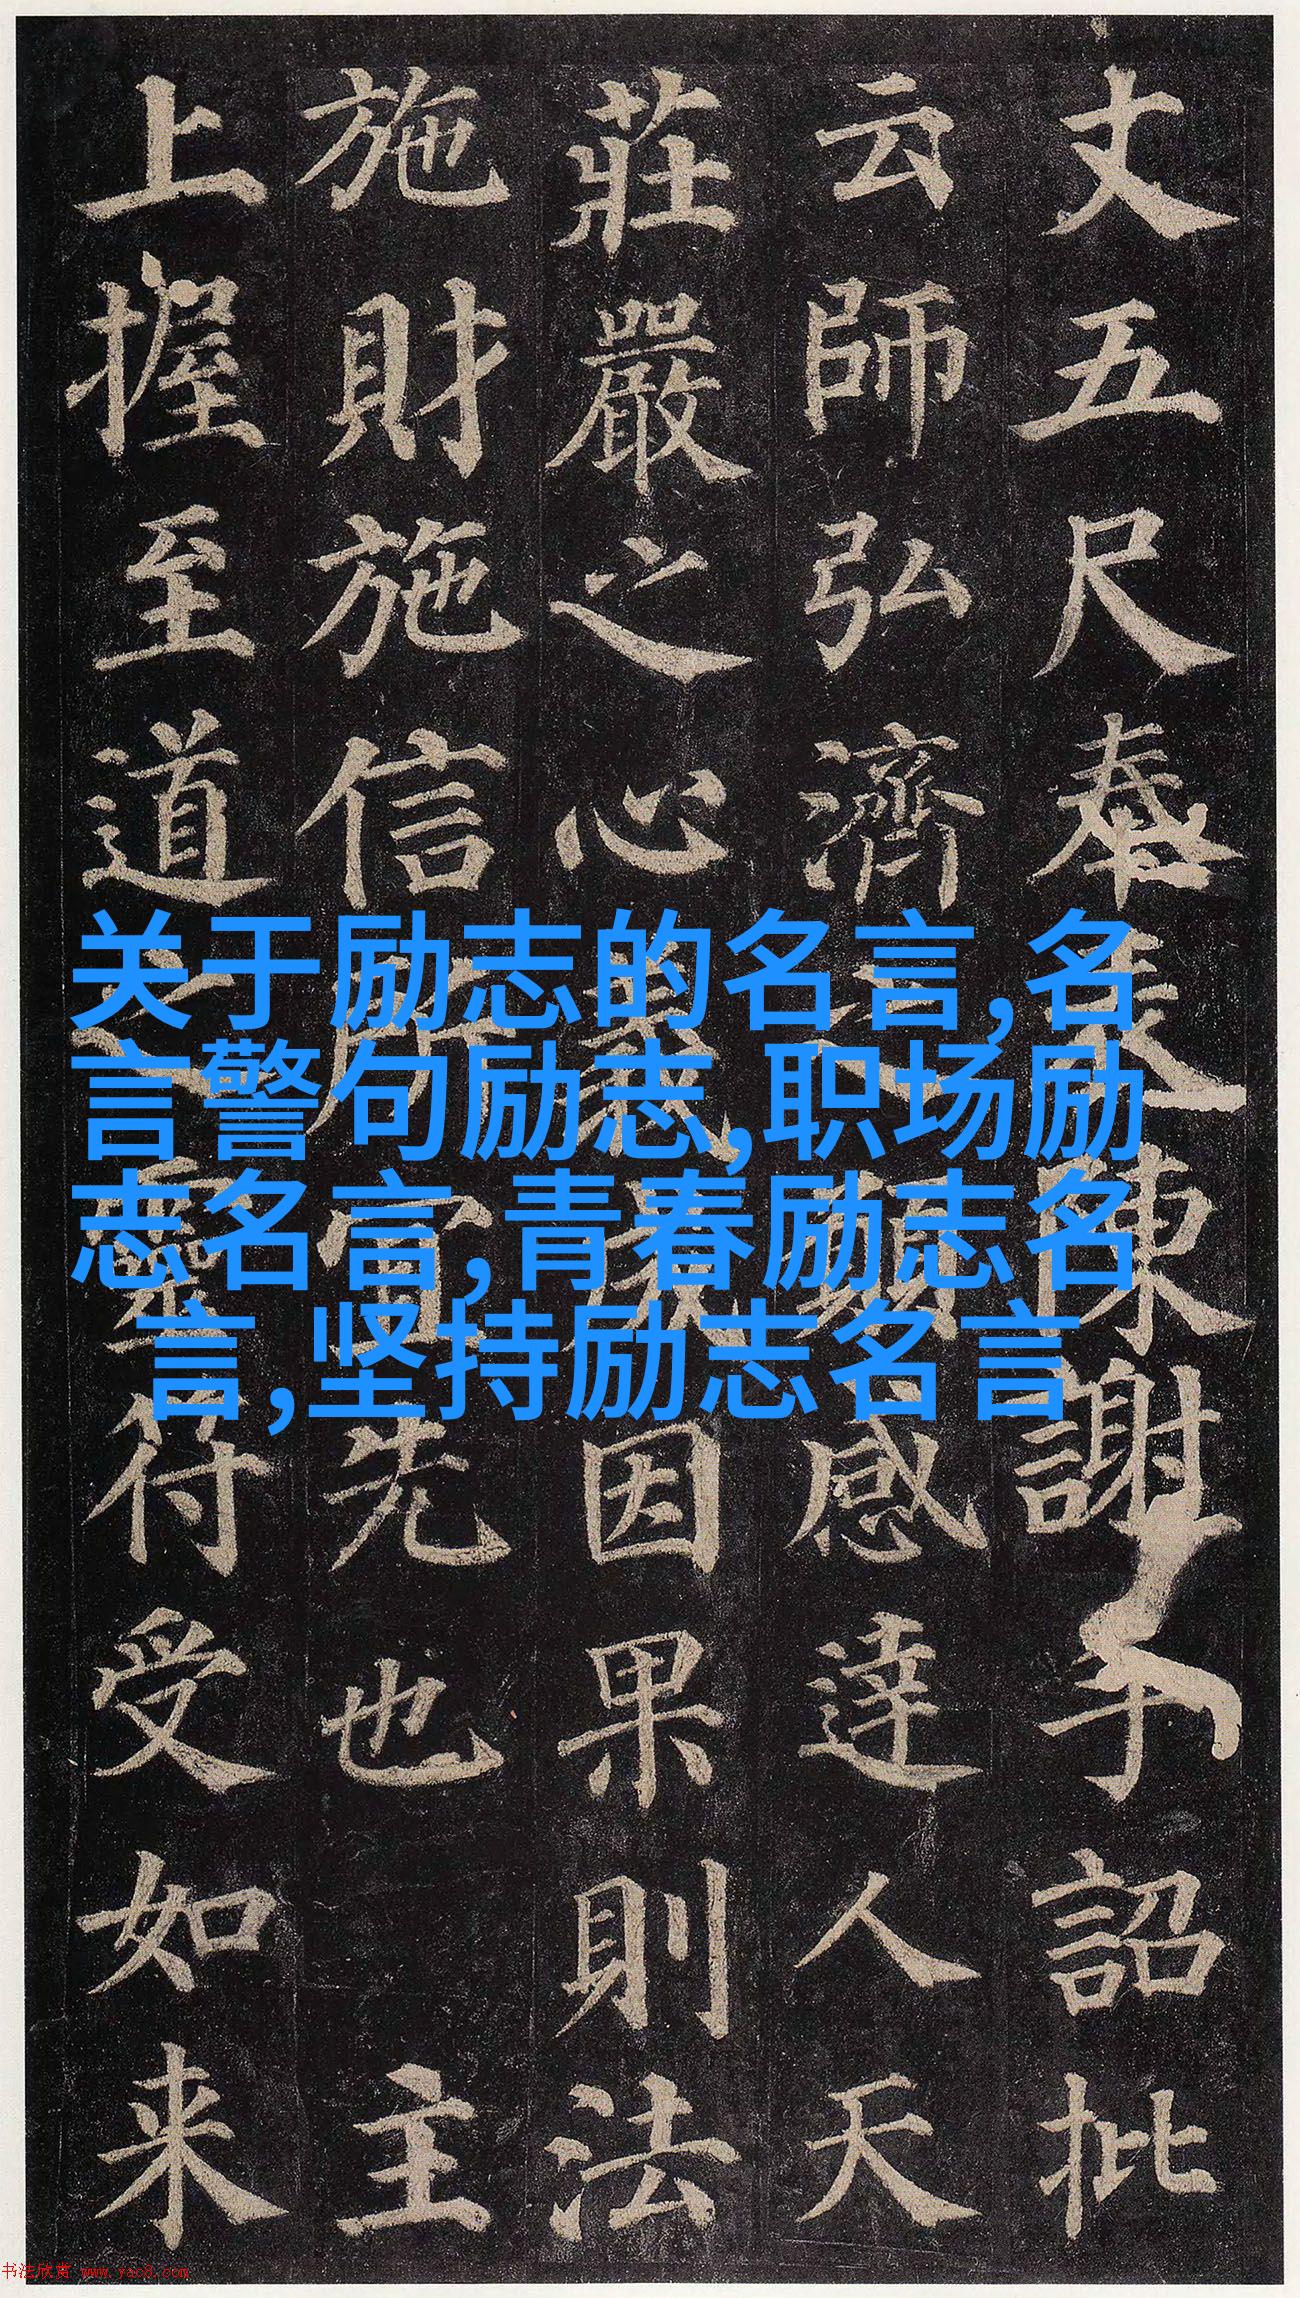 丈五尺奉表陳謝手詔批
云師弘濟之願感達人天
莊嚴之心義成因果則法
施財施信所宜先也 主
上握至道之靈符受如来
关于励志的名言,名
言警句励志,职场励
志名言,青春励志名
言,坚持励志名言
书法欣赏 www.yac8.com